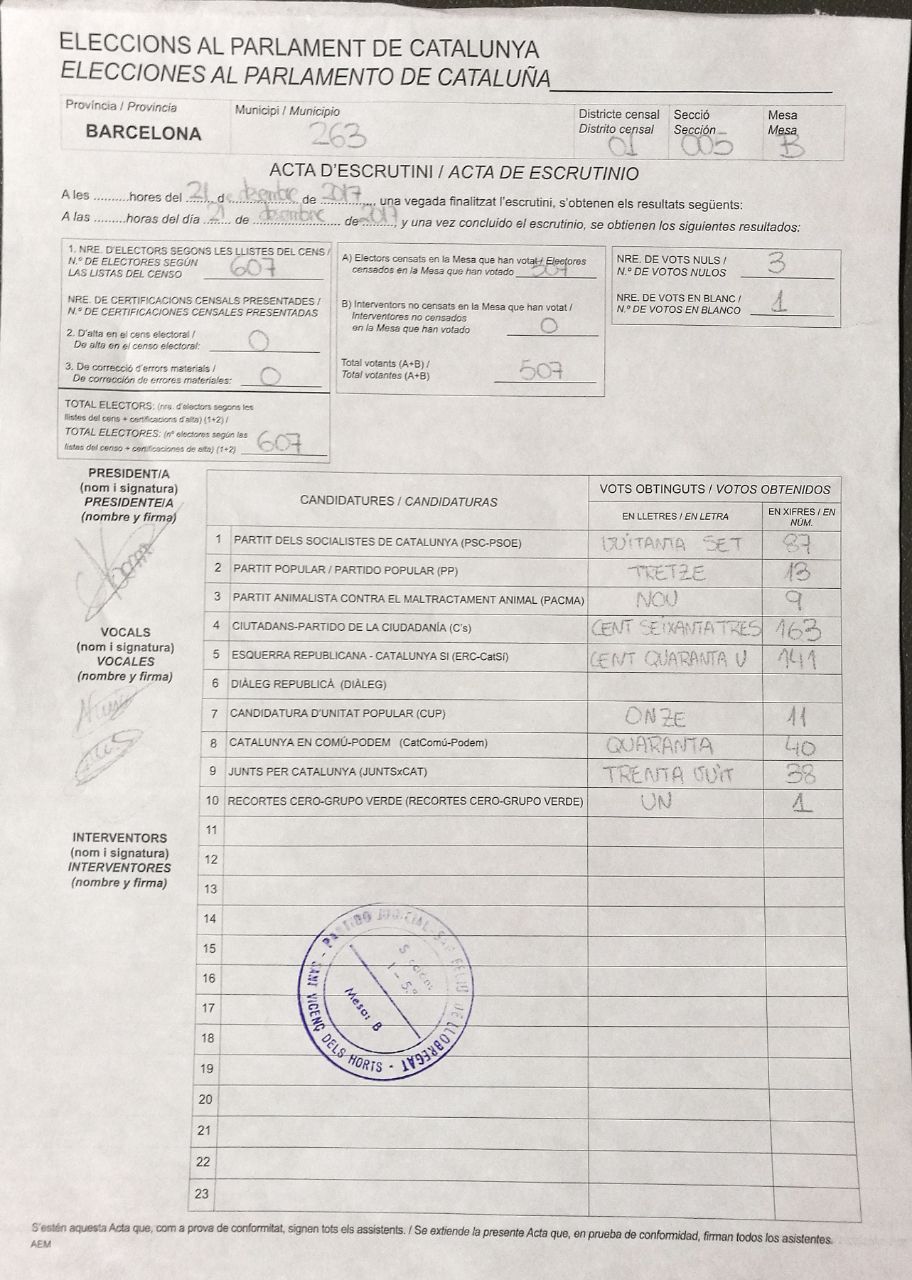 ELECCIONS AL PARLAMENT DE CATALUNYA
ELECCIONES AL PARLAMENTO DE CATALUÑA
Província / Provincia
BARCELONA
Municipi / Municipio
263
Districte censal
Distrito censal
01
Secció
Sección
005
Mesa
Mesa
B
ACTA D'ESCRUTINI / ACTA DE ESCRUTINIO
A les ..........hores del 21 d desembre de 2017, una vegada finalitzat l'escrutini, s'obtenen els resultats següents:
A las ..........horas del día 21 de desembre de 2017, y una vez concluido el escrutinio, se obtienen los siguientes resultados:
1. NRE. D'ELECTORS SEGONS LES LLISTES DEL CENS /
N.º DE ELECTORES SEGÚN
LAS LISTAS DEL CENSO
607
NRE. DE CERTIFICACIONS CENSALS PRESENTADES /
N.º DE CERTIFICACIONES CENSALES PRESENTADAS
2. D'alta en el cens electoral /
De alta en el censo electoral:
0
3. De correcció d'errors materials /
De corrección de errores materiales:
0
TOTAL ELECTORS: (nre. d'electors segons les
llistes del cens + certificacions d'alta) (1+2) /
TOTAL ELECTORES: (nº electores según las
listas del censo + certificaciones de alta) (1+2)
607
A) Electors censats en la Mesa que han votat / Electores
censados en la Mesa que han votado
507
B) Interventors no censats en la Mesa que han votat /
Interventores no censados
en la Mesa que han votado
0
Total votants (A+B) /
Total votantes (A+B)
507
NRE. DE VOTS NULS /
N.º DE VOTOS NULOS
3
NRE. DE VOTS EN BLANC /
N.º DE VOTOS EN BLANCO
1
PRESIDENT/A
(nom i signatura)
PRESIDENTE/A
(nombre y firma)
VOCALS
(nom i signatura)
VOCALES
(nombre y firma)
INTERVENTORS
(nom i signatura)
INTERVENTORES
(nombre y firma)
CANDIDATURES / CANDIDATURAS
VOTS OBTINGUTS / VOTOS OBTENIDOS
EN LLETRES / EN LETRA
EN XIFRES / EN NÚM.
1 PARTIT DELS SOCIALISTES DE CATALUNYA (PSC-PSOE) VUITANTA SET 87
2 PARTIT POPULAR / PARTIDO POPULAR (PP) TRETZE 13
3 PARTIT ANIMALISTA CONTRA EL MALTRACTAMENT ANIMAL (PACMA) NOU 9
4 CIUTADANS-PARTIDO DE LA CIUDADANÍA (C's) CENT SEIXANTA TRES 163
5 ESQUERRA REPUBLICANA - CATALUNYA SI (ERC-CatSí) CENT QUARANTA U 141
6 DIÀLEG REPUBLICÀ (DIÀLEG)
7 CANDIDATURA D'UNITAT POPULAR (CUP) ONZE 11
8 CATALUNYA EN COMÚ-PODEM (CatComú-Podem) QUARANTA 40
9 JUNTS PER CATALUNYA (JUNTSxCAT) TRENTA VUIT 38
10 RECORTES CERO-GRUPO VERDE (RECORTES CERO-GRUPO VERDE) UN 1
11
12
13
14
15
16
17
18
19
20
21
22
23
PARTIDO JUDICIAL SAN FELIU DE LLOBREGAT - SANT VICENÇ DELS HORTS -
1 - 5.ª
Mesa: B
S'estén aquesta Acta que, com a prova de conformitat, signen tots els assistents. / Se extiende la presente Acta que, en prueba de conformidad, firman todos los asistentes.
AEM